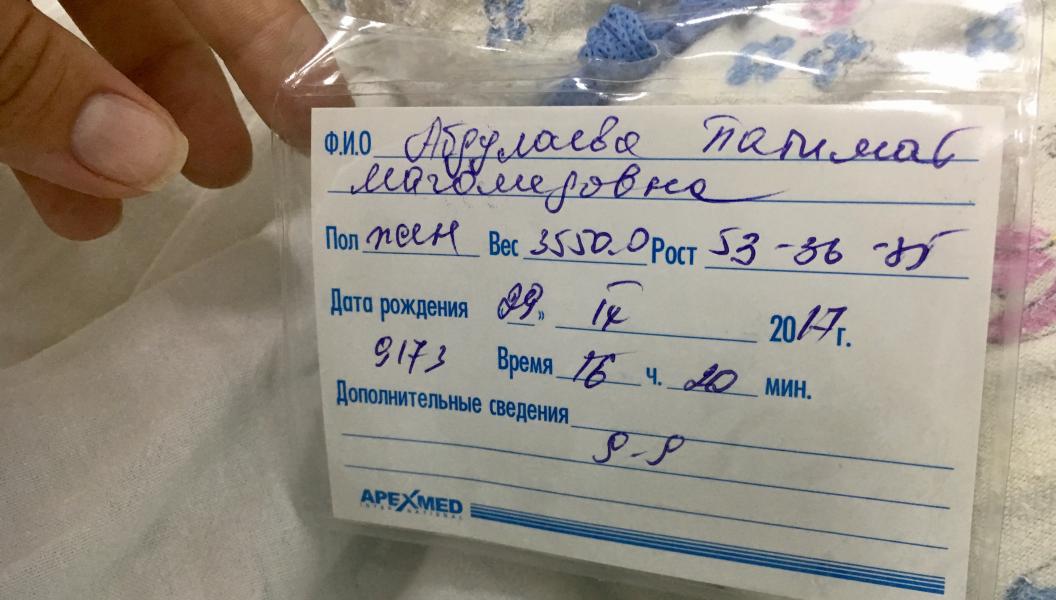 Ф.И.О Абдулаева Патимат
Магомедовна
Пол жен Вес 3550.0 Рост 53-36-35
Дата рождения 29 " IX 2017 г.
9173 Время 16 ч. 20 мин.
Дополнительные сведения
9-9
APEXMED
INTERNATIONAL